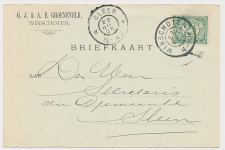 G. J. & A. R. GROENEVELD,
WINSCHOTEN.
SLEEN
WINSCHOTEN
BRIEFKAART
AAN
Den Heer
Secretaris
der Gemeente
Sleen